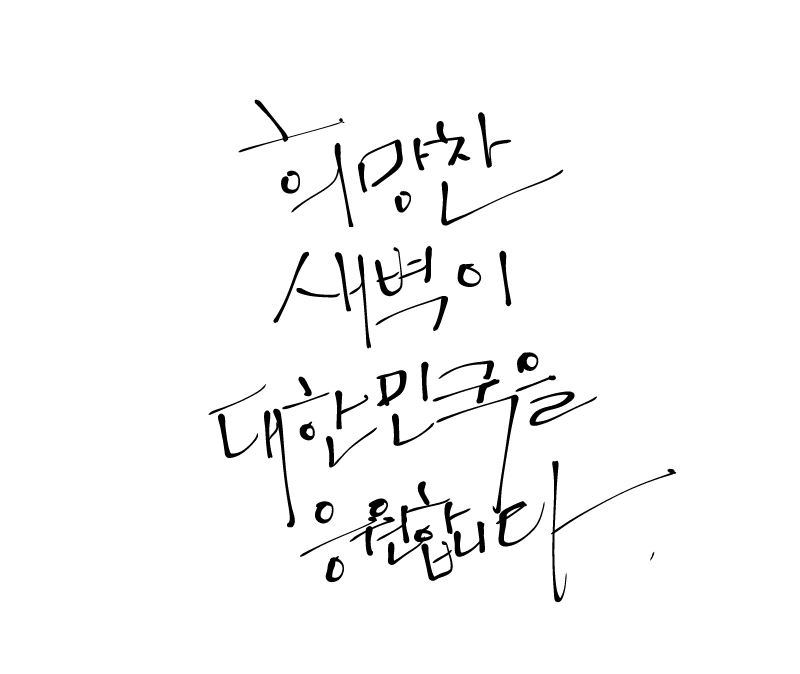 희망찬
새벽이
대한민국을
응원합니다